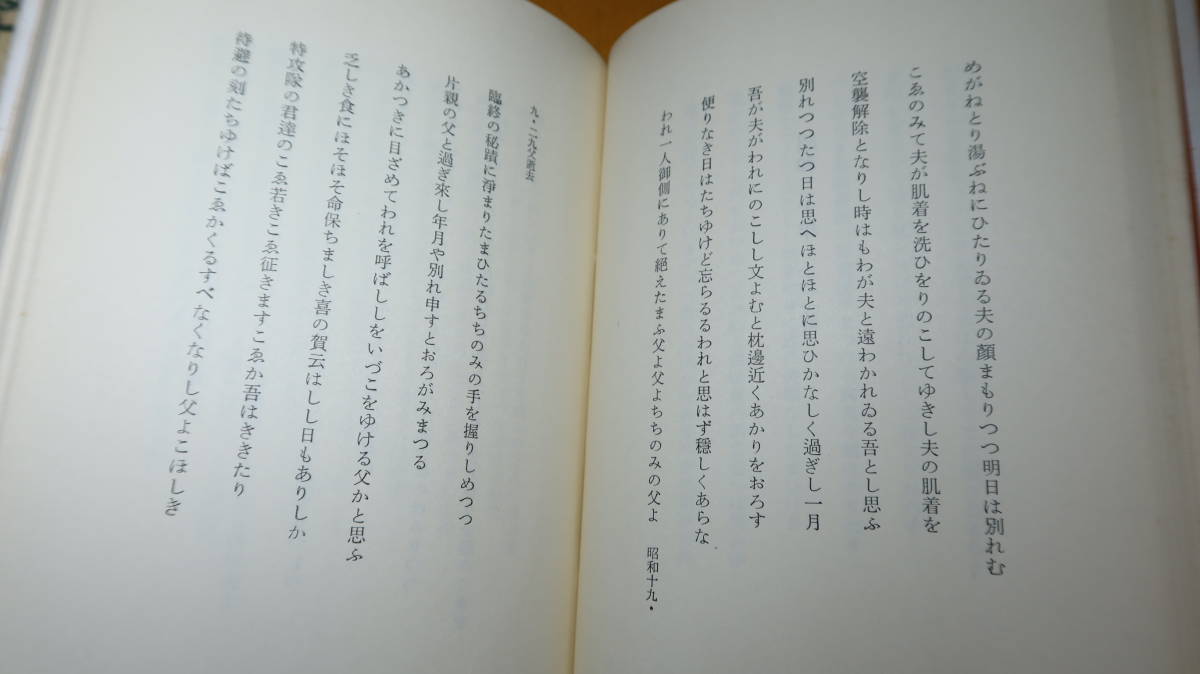 めがねとり湯ぶねにひたりゐる夫の顔まもりつつ明日は別れむ
こゑのみて夫が肌着を洗ひをりのこしてゆきし夫の肌着を
空襲解除となりし時はもわが夫と遠わかれゐる吾とし思ふ
別れつつたつ日は思へほとほとに思ひかなしく過ぎし一月
吾が夫がわれにのこしし文よむと枕邊近くあかりをおろす
便りなき日はたちゆけど忘らるるわれと思はず穏しくあらな
われ一人御側にありて絶えたまふ父よ父よちちのみの父よ 昭和十九・
九・二九父逝去
臨終の秘蹟に淨まりたまひたるちちのみの手を握りしめつつ
片親の父と過ぎ來し年月や別れ申すとおろがみまつる
あかつきに目ざめてわれを呼ばししをいづこをゆける父かと思ふ
乏しき食にほそほそ命保ちましき喜の賀云はしし日もありしか
特攻隊の君達のこゑ若きこゑ征きますこゑか吾はききたり
待避の刻たちゆけばこゑかくるすべなくなりし父よこほしき